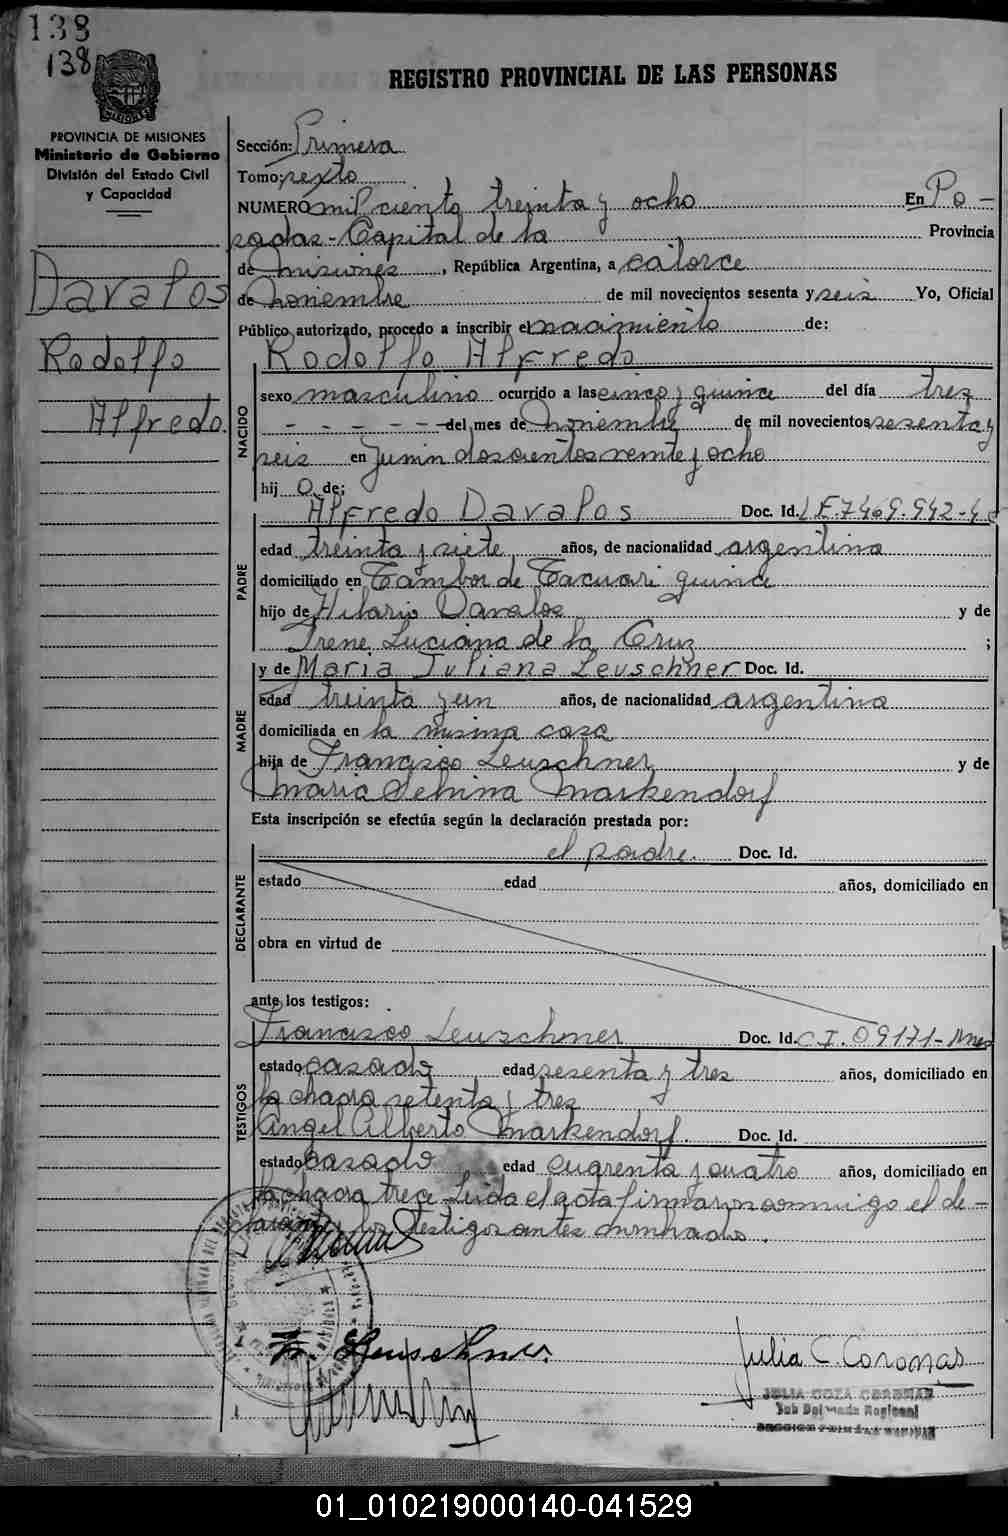 138
138
REGISTRO PROVINCIAL DE LAS PERSONAS
PROVINCIA DE MISIONES
Ministerio de Gobierno
División del Estado Civil
y Capacidad
Davalos
Rodolfo
Alfredo.
Sección: Primera
Tomo: sexto
NUMERO mil ciento treinta y ocho En Po-
sadas - Capital de la Provincia
de Misiones, República Argentina, a catorce
de Noviembre de mil novecientos sesenta y seis Yo, Oficial
Público autorizado, procedo a inscribir el nacimiento de:
Rodolfo Alfredo
NACIDO
sexo masculino ocurrido a las cinco y quince del día tres
- - - - - - del mes de Noviembre de mil novecientos sesenta y
seis en Junin doscientos veinte y ocho
hij o de:
PADRE
Alfredo Davalos Doc. Id. L E. 7409.942-
edad treinta y siete años, de nacionalidad argentina
domiciliado en Tambor de Tacuari quince
hijo de Hilario Davalos y de
Irene Luciana de la Cruz ;
y de Maria Juliana Leuschner Doc. Id.
MADRE
edad treinta y un años, de nacionalidad argentina
domiciliada en la misma casa
hija de Francisco Leuschner y de
Maria Markendorf
Esta inscripción se efectúa según la declaración prestada por:
DECLARANTE
el padre. Doc. Id.
estado edad años, domiciliado en
obra en virtud de
ante los testigos:
TESTIGOS
Francisco Leuschner Doc. Id. C.I. 09171-Mnes
estado casado edad sesenta y tres años, domiciliado en
la chacra setenta y tres
Angel Alberto Markendorf. Doc. Id.
estado Casado edad cuarenta y cuatro años, domiciliado en
la chacra trece. Leida el acta firmaron conmigo el de-
clarante y los testigos antes nombrado.
Fr. Leuschner.
Julia C. Coronas
JULIA COZA CORONAS
Sub Delegada Regional
SECCION PRIMERA
01_010219000140-041529